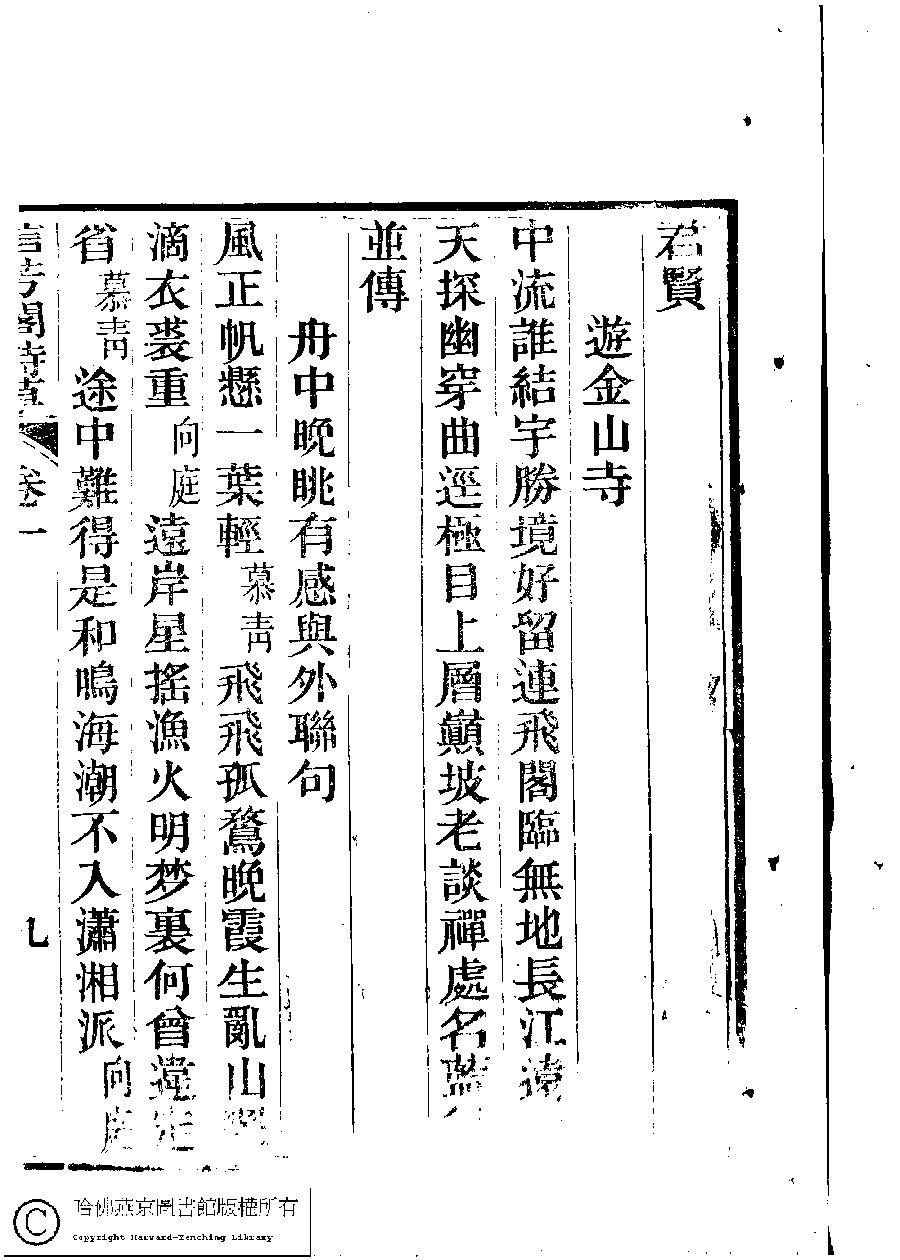 君賢
遊金山寺
中流誰結宇勝境好留連飛閣臨無地長江遠
天探幽穿曲逕極目上層巔坡老談禪處名藍
並傳
舟中晚眺有感與外聯句
風正帆懸一葉輕慕青飛飛孤鶩晚霞生亂山
滴衣裘重向庭遠岸星搖漁火明梦裏何曾違定
省慕青途中難得是和鳴海潮不入瀟湘派向庭
信芳閣詩草 卷一
九
哈佛燕京圖書館版權所有
Copyright Harvard-Yenching Library